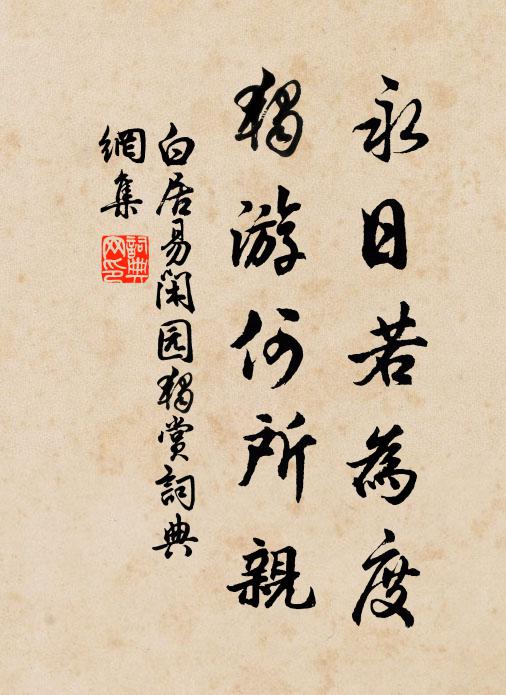 永日若為度
獨游何所親
白居易閑园獨赏詞典
網集
詞典
网印